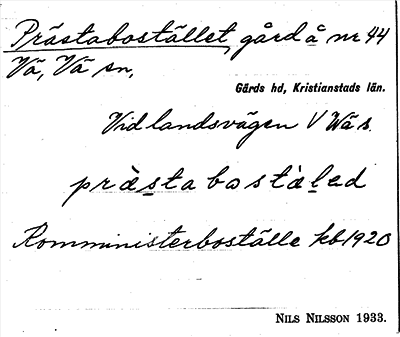 Prästabostället, gård å nr 44
Vä, Vä sn,
Gärds hd, Kristianstads län.
Vid landsvägen V Wä s.
prästabostäled
Komministerboställe kb 1920
NILS NILSSON 1933.